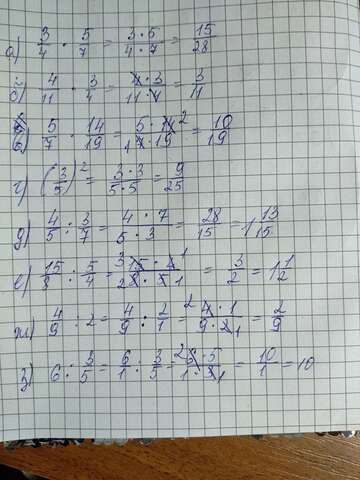 а) 3/4 · 5/7 = 3·5/4·7 = 15/28
б) 4/11 · 3/4 = 4·3/11·4 = 3/11
в) 5/7 · 14/19 = 5·14 2/1 7·19 = 10/19
г) (3/5)² = 3·3/5·5 = 9/25
д) 4/5 : 3/7 = 4·7/5·3 = 28/15 = 1 13/15
е) 15/8 : 5/4 = 3 15·4 1/2 8·5 1 = 3/2 = 1 1/2
ж) 4/9 : 2 = 4/9 : 2/1 = 2 4·1/9·2 1 = 2/9
з) 6 : 3/5 = 6/1 : 3/5 = 2 6·5/1·3 1 = 10/1 = 10